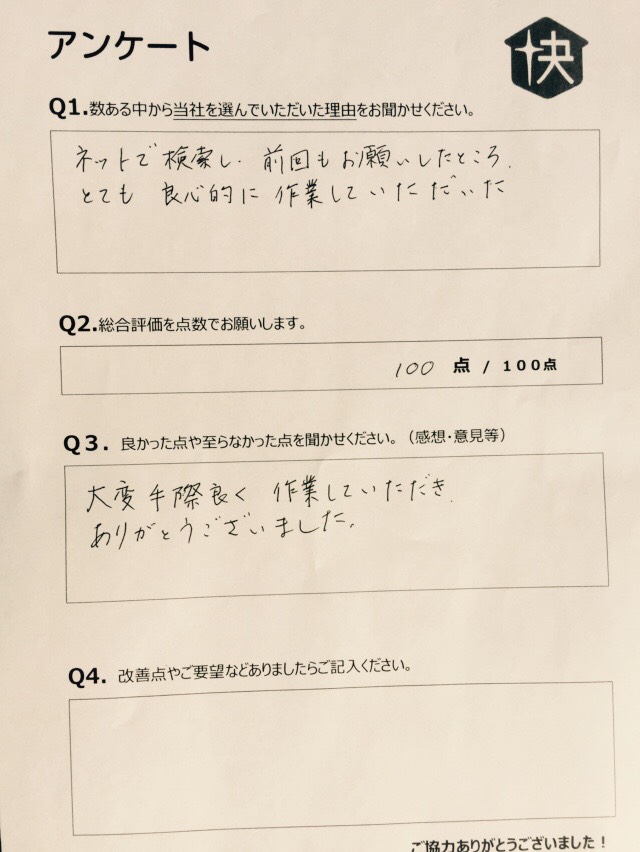 アンケート
快
Q1.数ある中から当社を選んでいただいた理由をお聞かせください。
ネットで検索し、前回もお願いしたところ、
とても 良心的に 作業していただいた
Q2.総合評価を点数でお願いします。
100 点 / 100点
Q3. 良かった点や至らなかった点を聞かせください。（感想・意見等）
大変手際良く 作業していただき、
ありがとうございました。
Q4. 改善点やご要望などありましたらご記入ください。
ご協力ありがとうございました！